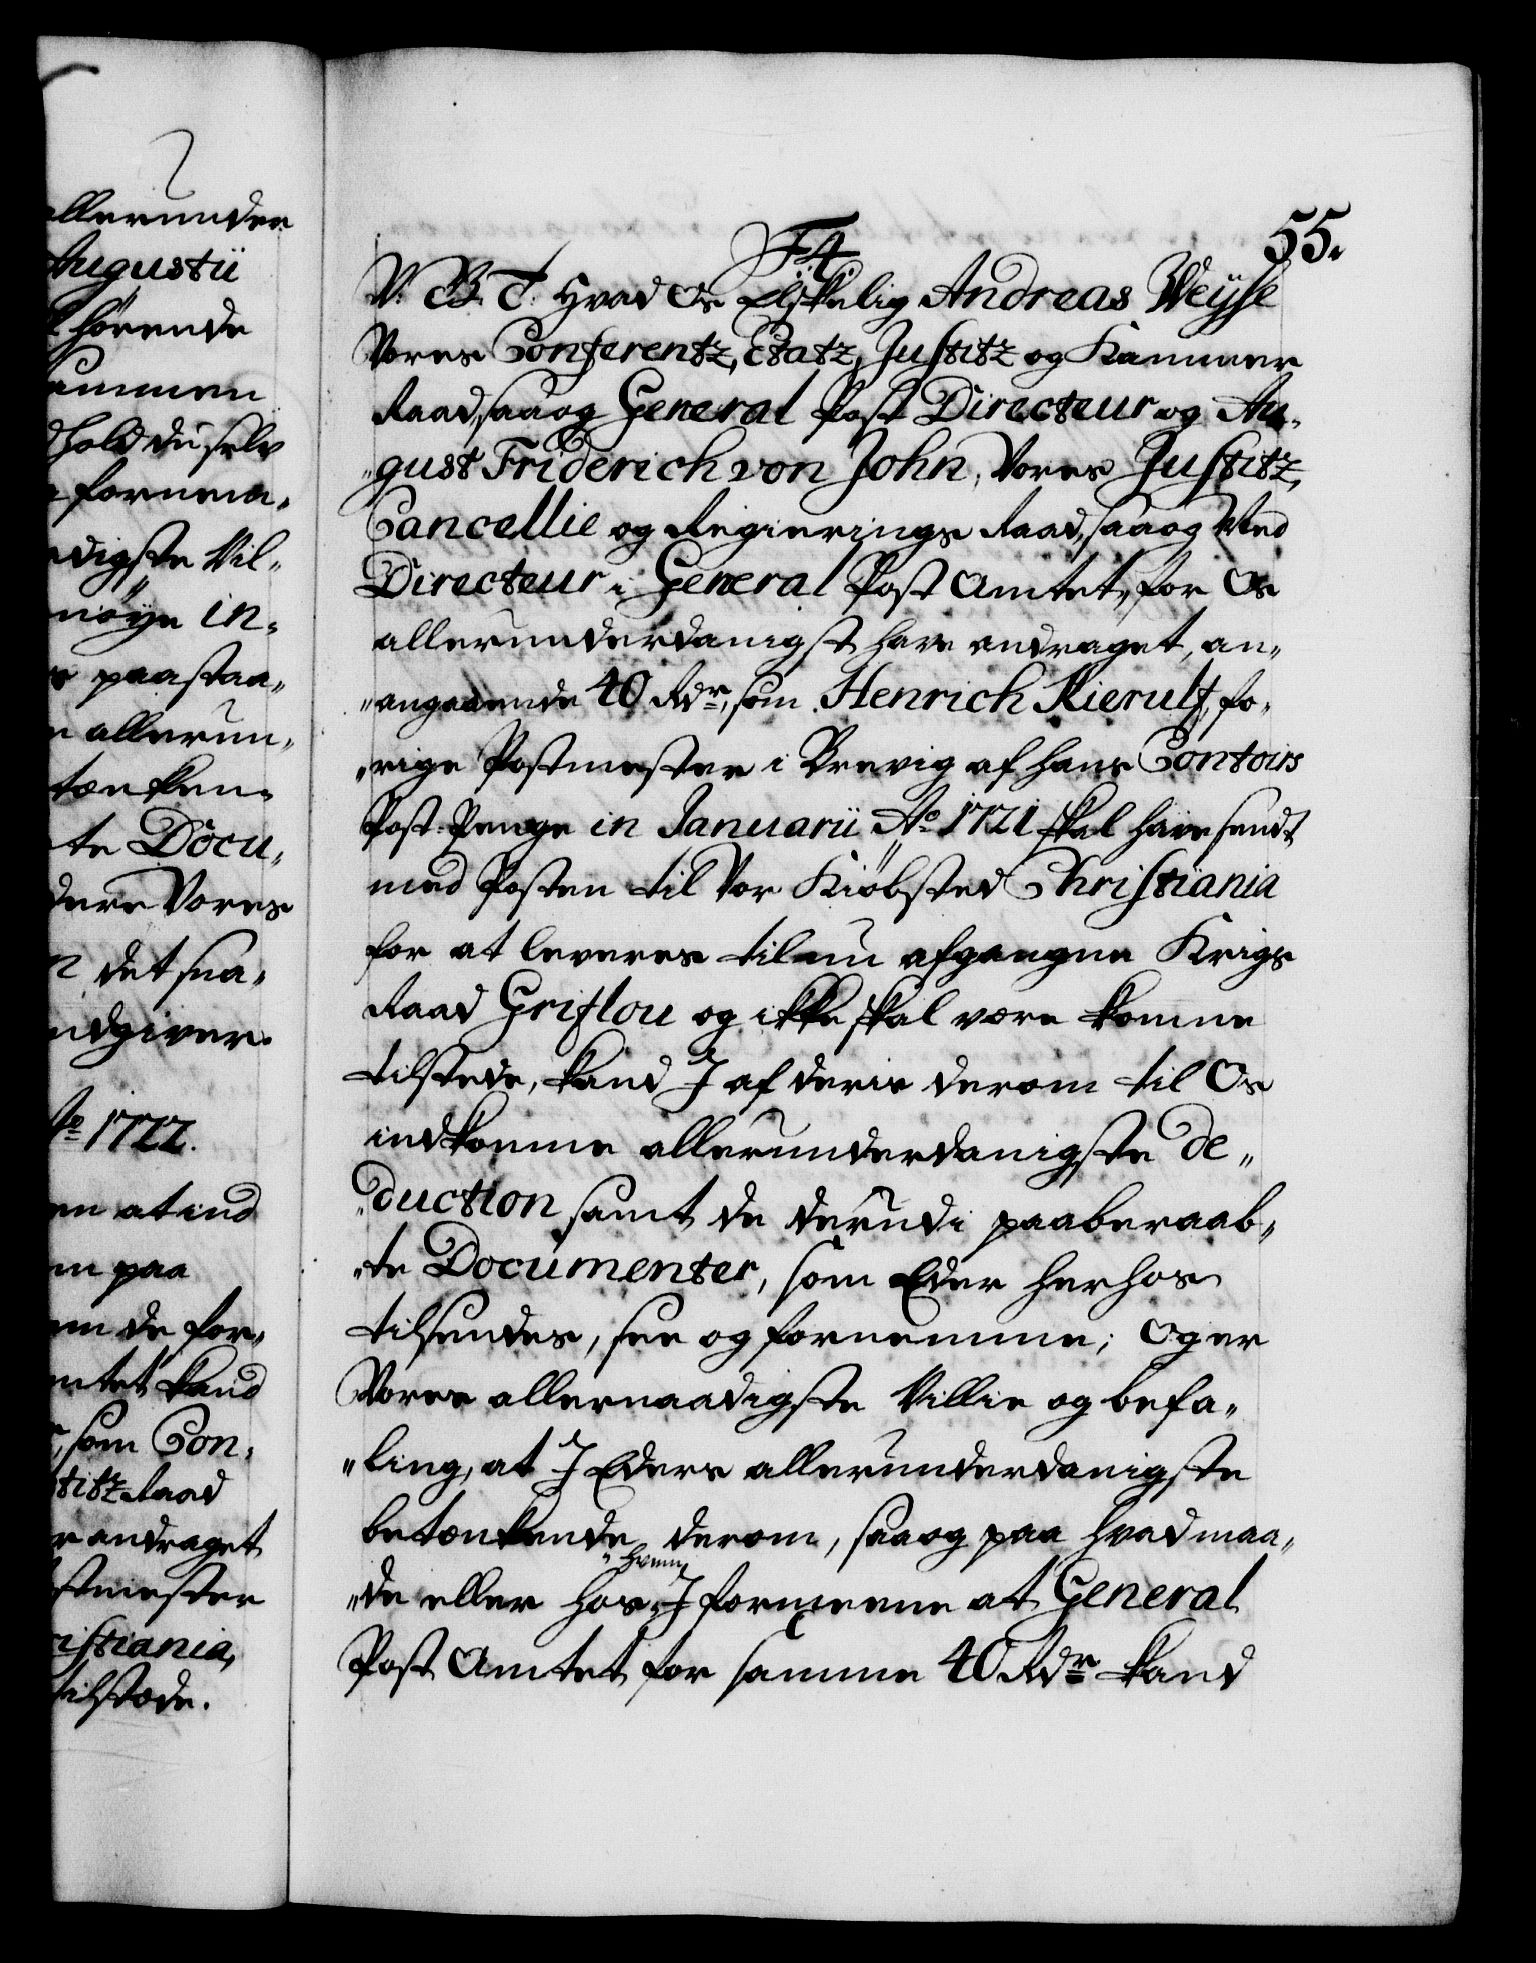 allerunder
Augustii
hörende
ammen
hold du selv
fornem„
adigste Vil„
nöye in„
paastaa„
allerun„
tænken„
te Docu„
dere Vores
det sna„
ndgiver.
Ao 1722.
en at ind
em paa
em de for„
mtet kand
som Con„
titz Raad
r andraget
stmester
ristiania,
tilstæde.
55.
F4
V: G. T. Hvad Os Elskelig Andreas Weyse
Vores Conferentz, Etatz, Justitz og Kammer
Raad, saa og General Post Directeur og Au„
„gust Friderich von John, Vores Justitz,
Cancellie og Regierings Raad, saa og Med
Directeur i General Post Amtet, for Os
allerunderdanigst have andraget, an„
„angaaende 40 Rdr, som Henrich Kierulf, fo„
„rige Postmester i Brevig af hans Contoirs
Post-Penge in Januarii Ao 1721 skal have sendt
med Posten til Vor Kiöbsted Christiania
for at leveres til nu afgangne Krigs
Raad Griflou og ikke skal være komne
tilstede, kand I af deris derom til Os
indkomne allerunderdanigste De„
„duction samt de derudi paaberaab„
„te Documenter, som Eder herhos
tilsendes, see og fornemme; Og er
Vores allernaadigste Villie og befa„
„ling, at I Eders allerunderdanigste
betænkende derom, saa og paa hvad maa„
„de eller hos „hvem I formeene at General
Post Amtet for samme 40 Rdr kand